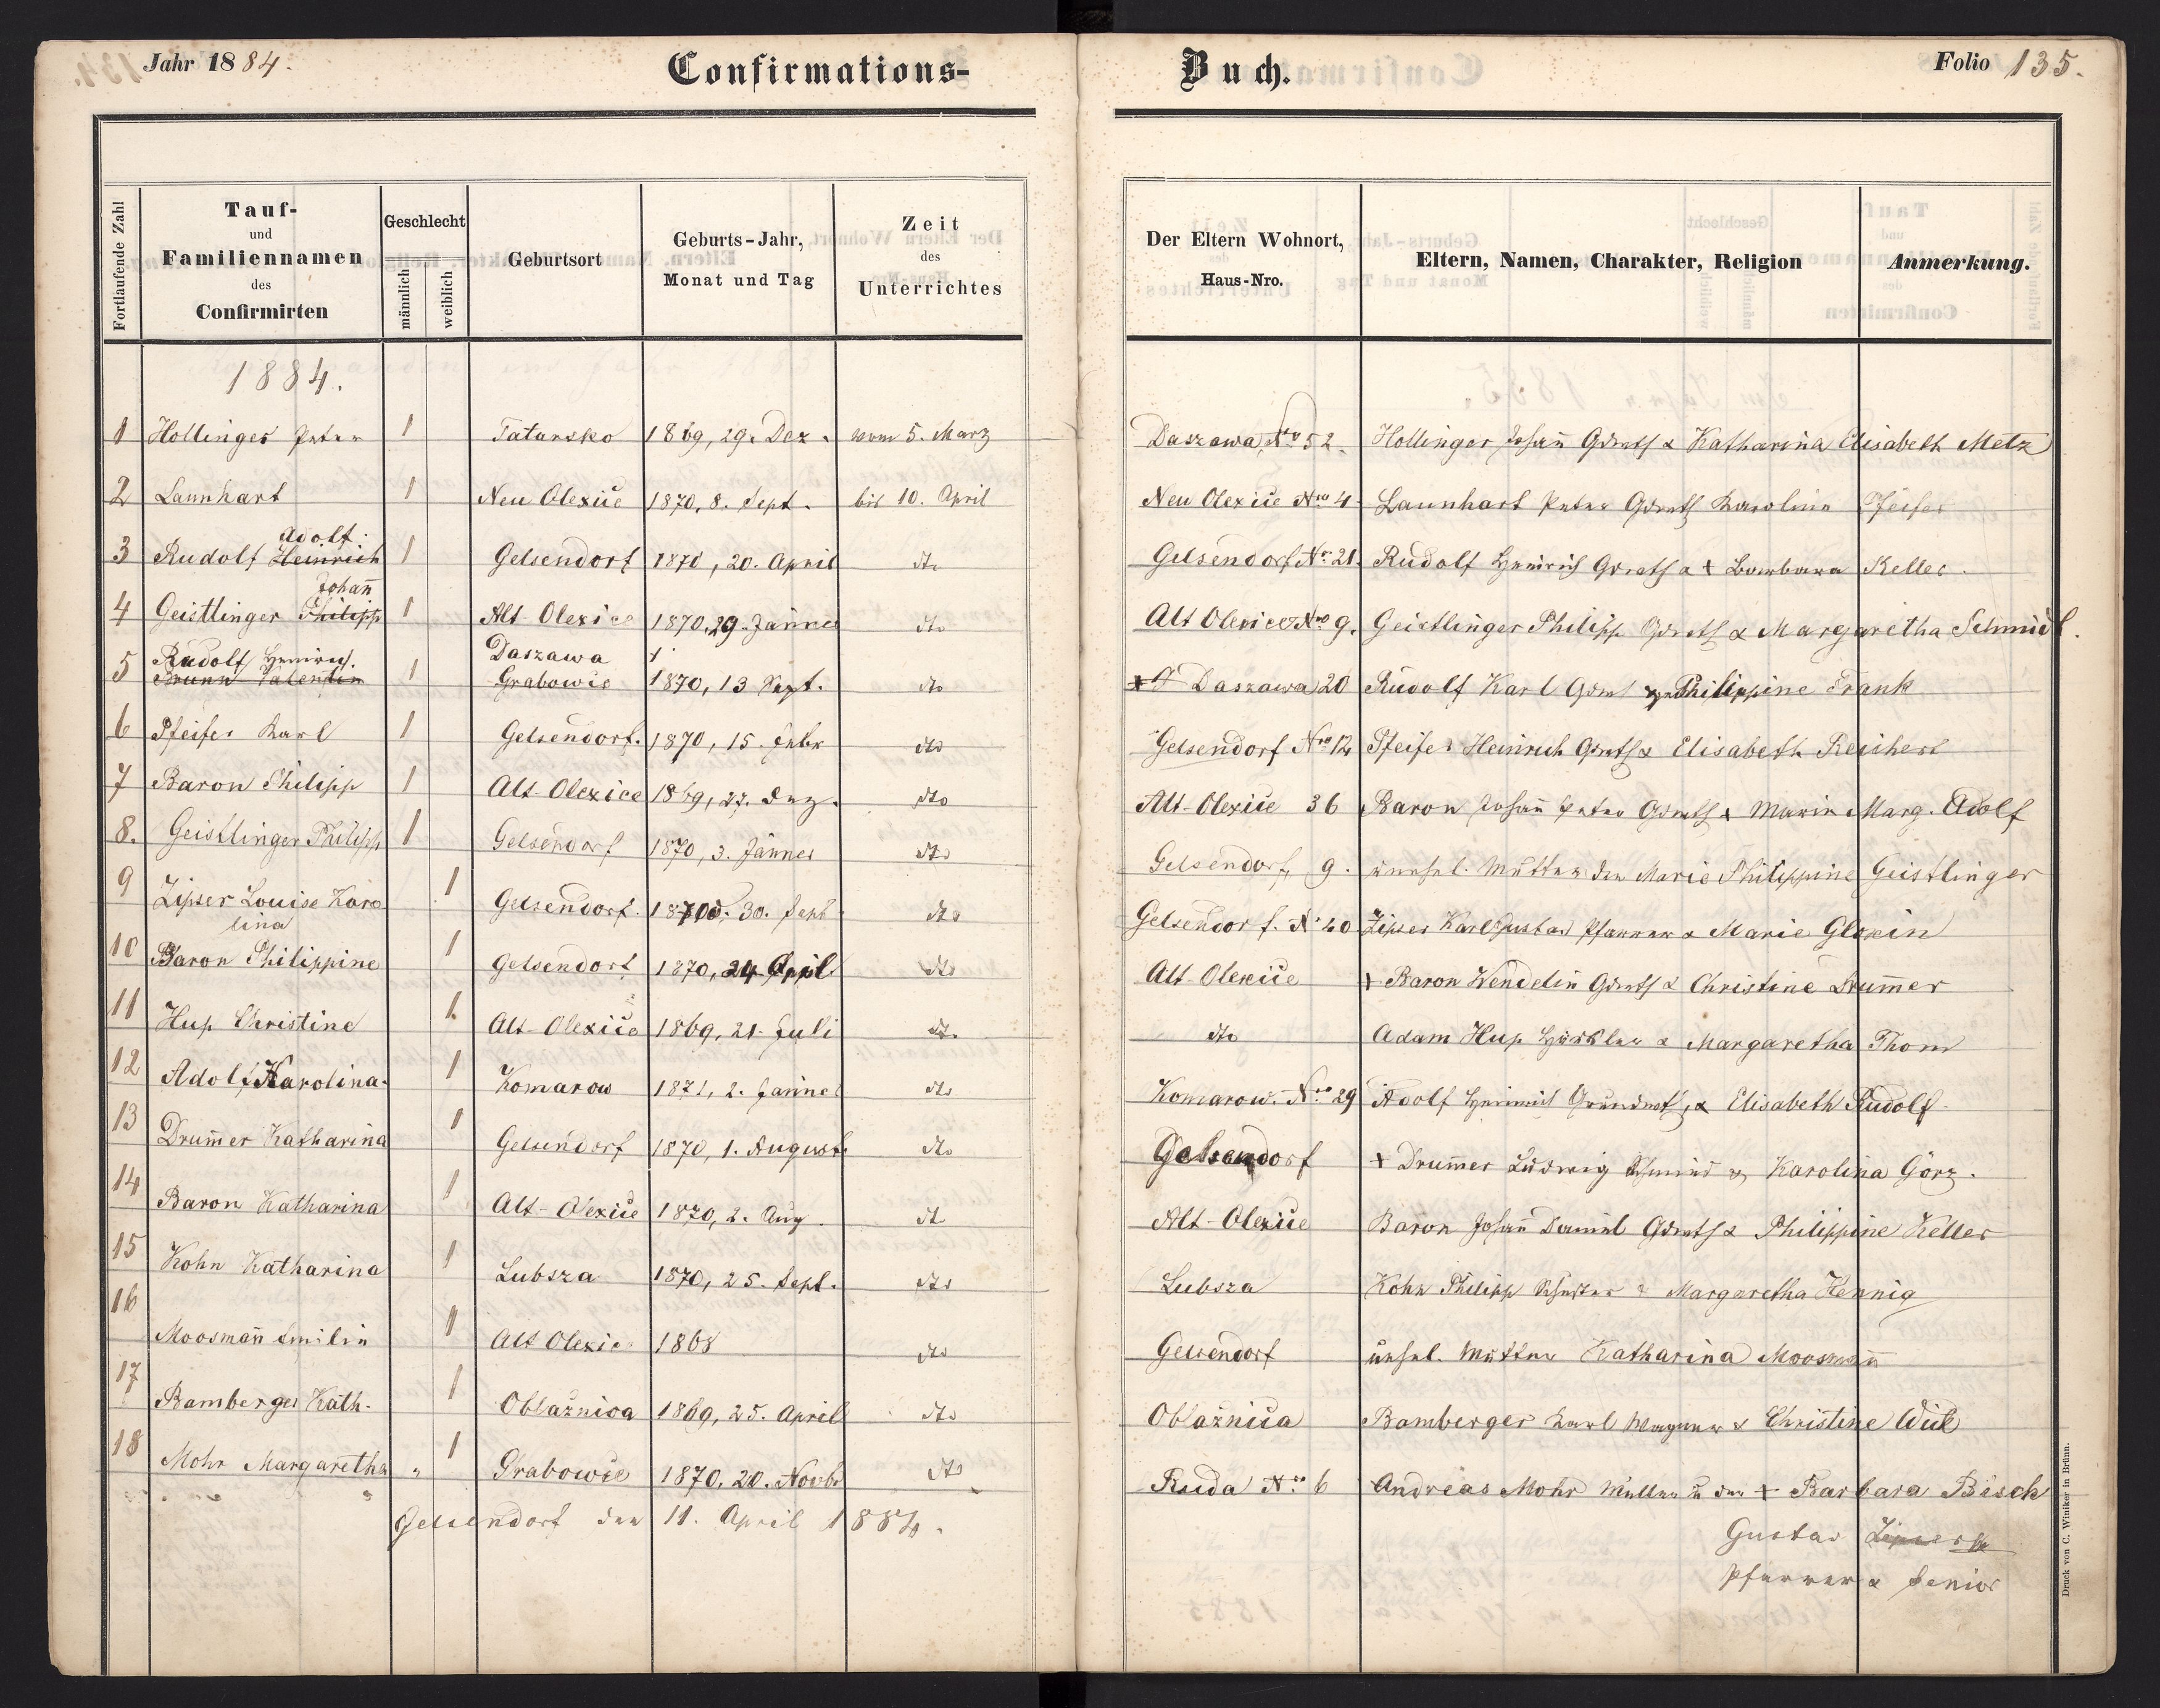 Jahr 1884.
Confirmations-
Buch.
Folio 135.
Fortlaufende Zahl
Tauf-
und
Familiennamen
des
Confirmirten
Geschlecht
männlich
weiblich
Geburtsort
Geburts-Jahr,
Monat und Tag
Zeit
des
Unterrichtes
Der Eltern Wohnort,
Haus-Nro.
Eltern, Namen, Charakter, Religion
Anmerkung.
1884.
1 Hollinger Peter 1 Tatarsko 1869, 29. Dez. vom 5. März Daszawa, Nro 52. Hollinger Johañ Gdwth & Katharina Elisabeth Metz
2 Launhart 1 Neu Olexice 1870, 8. Sept. bis 10. April Neu Olexice Nro 4. Launhart Peter Gdwth Karolina Pfeifer
Adolf
3 Rudolf Heinrich 1 Gelsendorf 1870, 20. April dto Gelsendorf Nr. 21. Rudolf Heinrich Gdwth & + Barbara Keller.
Johañ
4 Geistlinger Philipp 1 Alt-Olexice 1870, 29. Jänner dto Alt Olexice Nro 9. Geistlinger Philipp Gdwth & Margaretha Schmidt.
Rudolf Heinrich. Daszawa
5 Brunn Valentin 1 Grabowie 1870, 13 Sept. dto Daszawa 20 Rudolf Karl Gdw Philippine Frank
6 Pfeifer Karl 1 Gelsendorf. 1870, 15. Febr dto Gelsendorf Nro 12 Pfeifer Heinrich Gdwth & Elisabeth Reichert
7 Baron Philipp 1 Alt-Olexice 1869, 27. Dez. dto Alt-Olexice 36 Baron Johañ Peter Gdwth & Maria Marg. Adolf
8. Geistlinger Philipp 1 Gelsendorf 1870, 3. Jänner dto Gelsendorf, 9. unehel. Mutter den Marie Philippine Geistlinger
9 Zipser Louise Karo
lina 1 Gelsendorf. 1870, 30. Sept dto Gelsendorf. N. 40 Zipser Karl Gustav Pfarrer & Marie Gloxin
10 Baron Philippine 1 Gelsendorf 1870, 24 April dto Alt-Olexice + Baron Wendelin Gdwth & Christine Drum̄er
11 Hup Christine 1 Alt-Olexice 1869, 21. Juli dto dto Adam Hup & Margaretha Thom
12 Adolf Karolina. 1 Komarow 1871, 2. Jänner dto Komarow. Nro 29 Adolf Heinrich Grundwth, & Elisabeth Rudolf
13 Drum̄er Katharina 1 Gelsendorf 1870, 1. August. dto Gelsendorf + Drum̄er Ludwig Schmied & Karolina Görz.
14 Baron Katharina 1 Alt-Olexice 1870, 2. Aug. dt Alt-Olexice Baron Johañ Daniel Gdwth & Philippine Keller
15 Kohn Katharina 1 Lubsza 1870, 25. Sept. dto Lubsza Kohn Philipp Schuster & Margaretha Hennig
16 Moosmañ Emilie 1 Alt Olexice 1868 dto Gelsendorf unehel. Mutter Katharina Moosmañ
17 Bamberger Kath. 1 Oblażnica 1869, 25. April dto Oblażnica Bamberger Karl Wagner & Christine
18 Mohr Margaretha " 1 Grabowie 1870, 20. Novb. dto Ruda Nro 6 Andreas Mohr Müller & der + Barbara Bisch
Gelsendorf den 11. April 1884.
Gustav Zipser
Pfarrer & Senior
Druck von C. Winiker in Brünn.